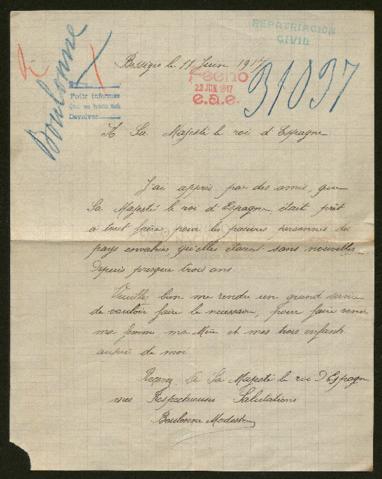 REPATRIACION
CIVIL
Boulonne
le 11 Juin 1917
Fecho
23 JUN 1917
e.a.e.
31037
Pedir informes
Devolver
A Sa Majesté le roi d'Espagne
J'ai appris par des amis, que
Sa Majesté le roi d'Espagne, était prêt
à tout faire, pour les personnes du
pays envahies qu'elles étaient sans nouvelles
depuis presque trois ans.
Veuillez bien me rendre un grand service
de vouloir faire le nécessaire, pour faire venir
ma femme ma et mes trois enfants
auprès de moi
Sa Majesté le roi D'Espagne
mes Respectueuses Salutations
Boulonne Modeste